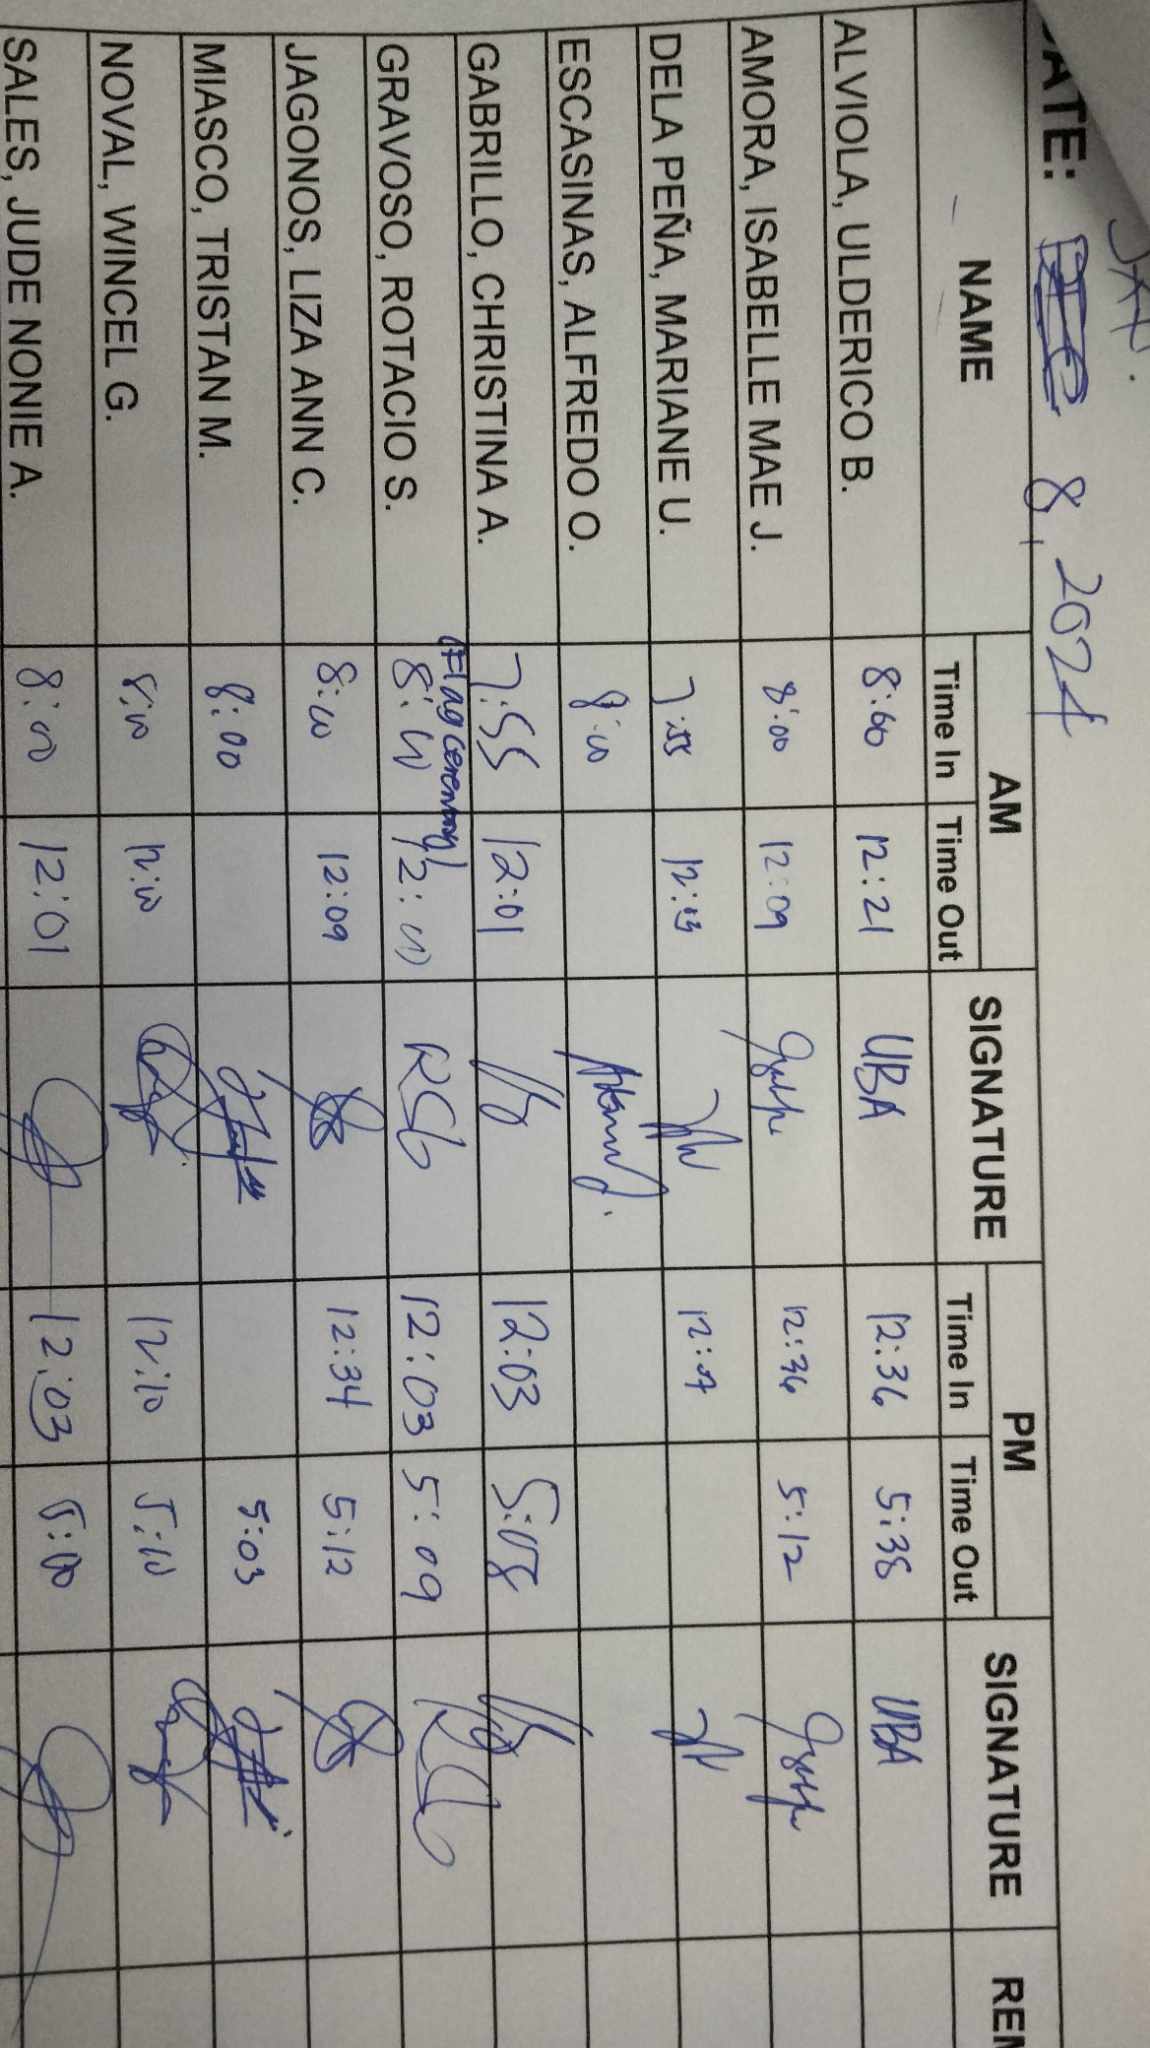 DATE: 8, 2024
NAME AM SIGNATURE PM SIGNATURE
Time In Time Out Time In Time Out
ALVIOLA, ULDERICO B. 8:00 12:21 UBA 12:36 5:38 UBA
AMORA, ISABELLE MAE J. 8:00 12:09 12:36 5:12
DELA PEÑA, MARIANE U. 7:55 12:03
ESCASINAS, ALFREDO O. 8:00
GABRILLO, CHRISTINA A. 7:55 12:01 12:03 5:08
(Flag ceremony)
GRAVOSO, ROTACIO S. 8:00 12:00 RSG 12:03 5:09 RSG
JAGONOS, LIZA ANN C. 8:00 12:09 12:34 5:12
MIASCO, TRISTAN M. 8:00 5:03
NOVAL, WINCEL G. 8:00 12:00 12:10 5:10
SALES, JUDE NONIE A. 8:00 12:01 12:03 5:00